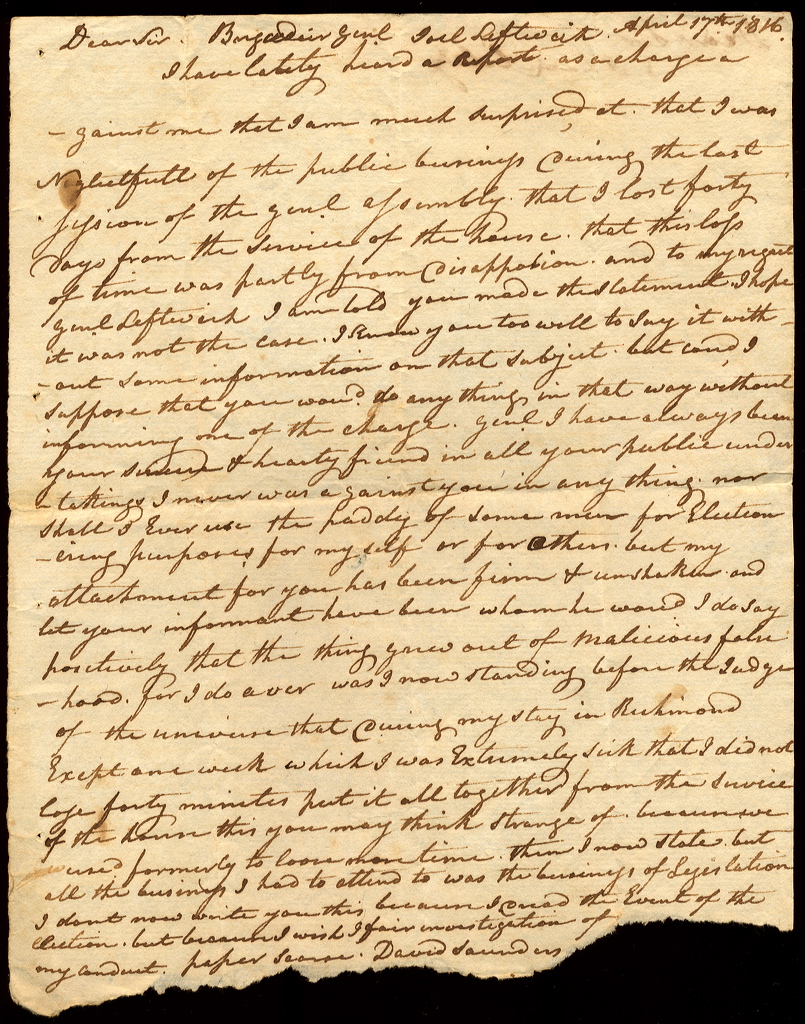 Dear Sir. Brigadeir Genl Joel Leftwich April 17th 1816.
I have lately heard a Report as a charge a
- gainst me that I am much surprised at. that I was
Neglectfull of the public business During the last
session of the genl assembly. that I lost forty
Days from the service of the house. that this loss
of time was partly from Disappation. and to my regret
genl Leftwich I am told you made the statement. I hope
it was not the case. I know you too well to say it with
- out some information on that subject. but coud I
suppose that you woud. do any thing in that way without
informing one of the charge. genl I have always been
your sincere & hearty friend in all your public under
- takings I never was against you in any thing. nor
shall I Ever use the paddy of some men for Election
- ering purposes for my self or for others. but my
attachment for you has been firm & unshaken. and
let your informant have been whom he woud I do say
positively that the thing grew out of Malicious false
- hood. for I do aver was I now standing before the Judge
of the universe that During my stay in Richmond
Except one week which I was Extremely sick that I did not
lose forty minutes put it all together from the service
of the house this you may think strange of. because we
used formerly to loose more time. then I now state. but
all the business I had to attend to was the business of Legislation
I dont now write you this because I Dread the Event of the
Election. but because I wish I fair investigation of
my conduct. paper scarse. David Saunders